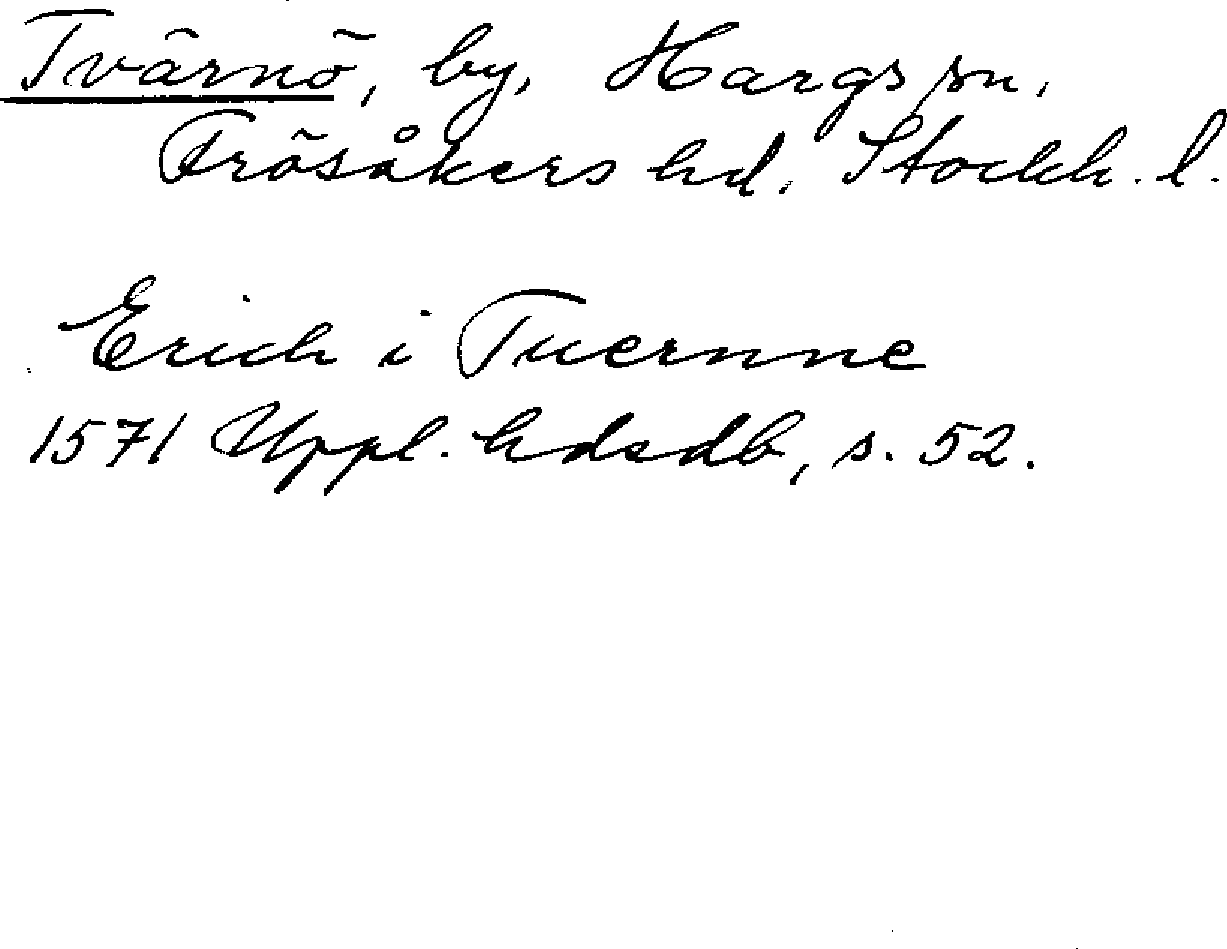 Tvärnö, by, Hargs sn,
Frösåkers hd. Stockh. l.
Erich i Tuernne
1571 Uppl. hdsdb, s. 52.